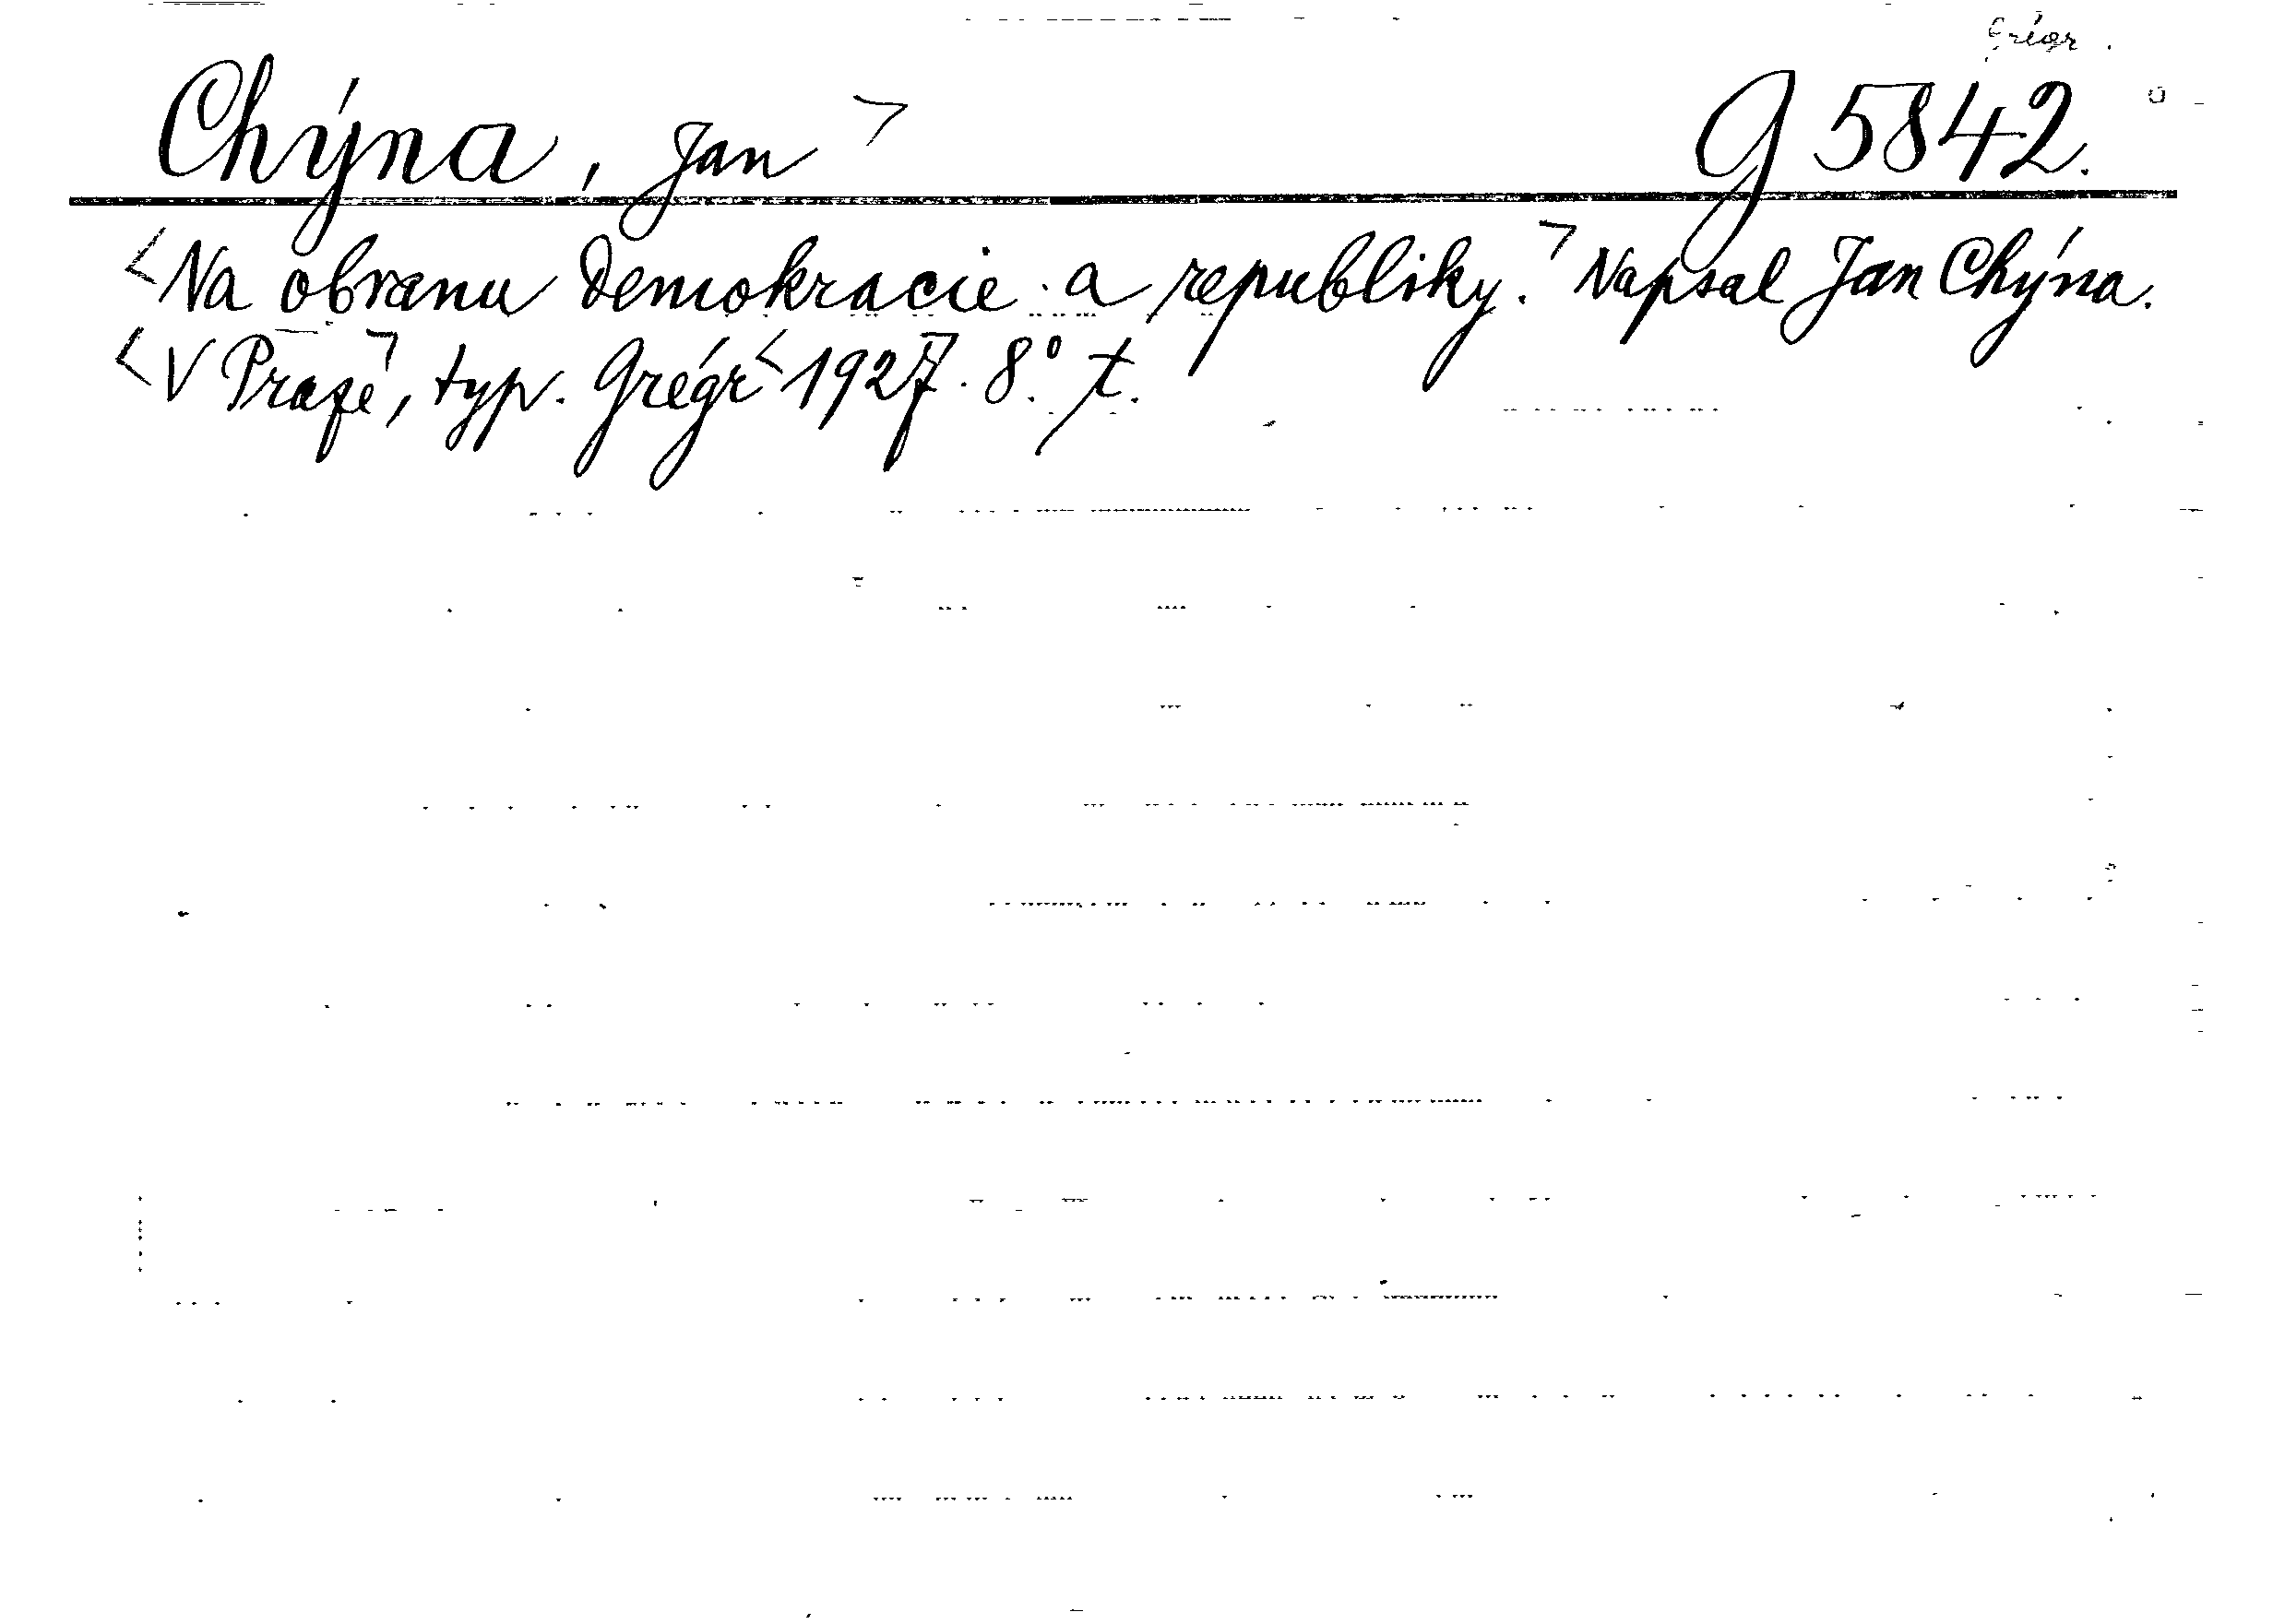 Grégr.
Chýna, Jan G 5842.
Na obranu demokracie a republiky. Napsal Jan Chýna.
V Praze, typ. Grégr 1927. 8.° t.